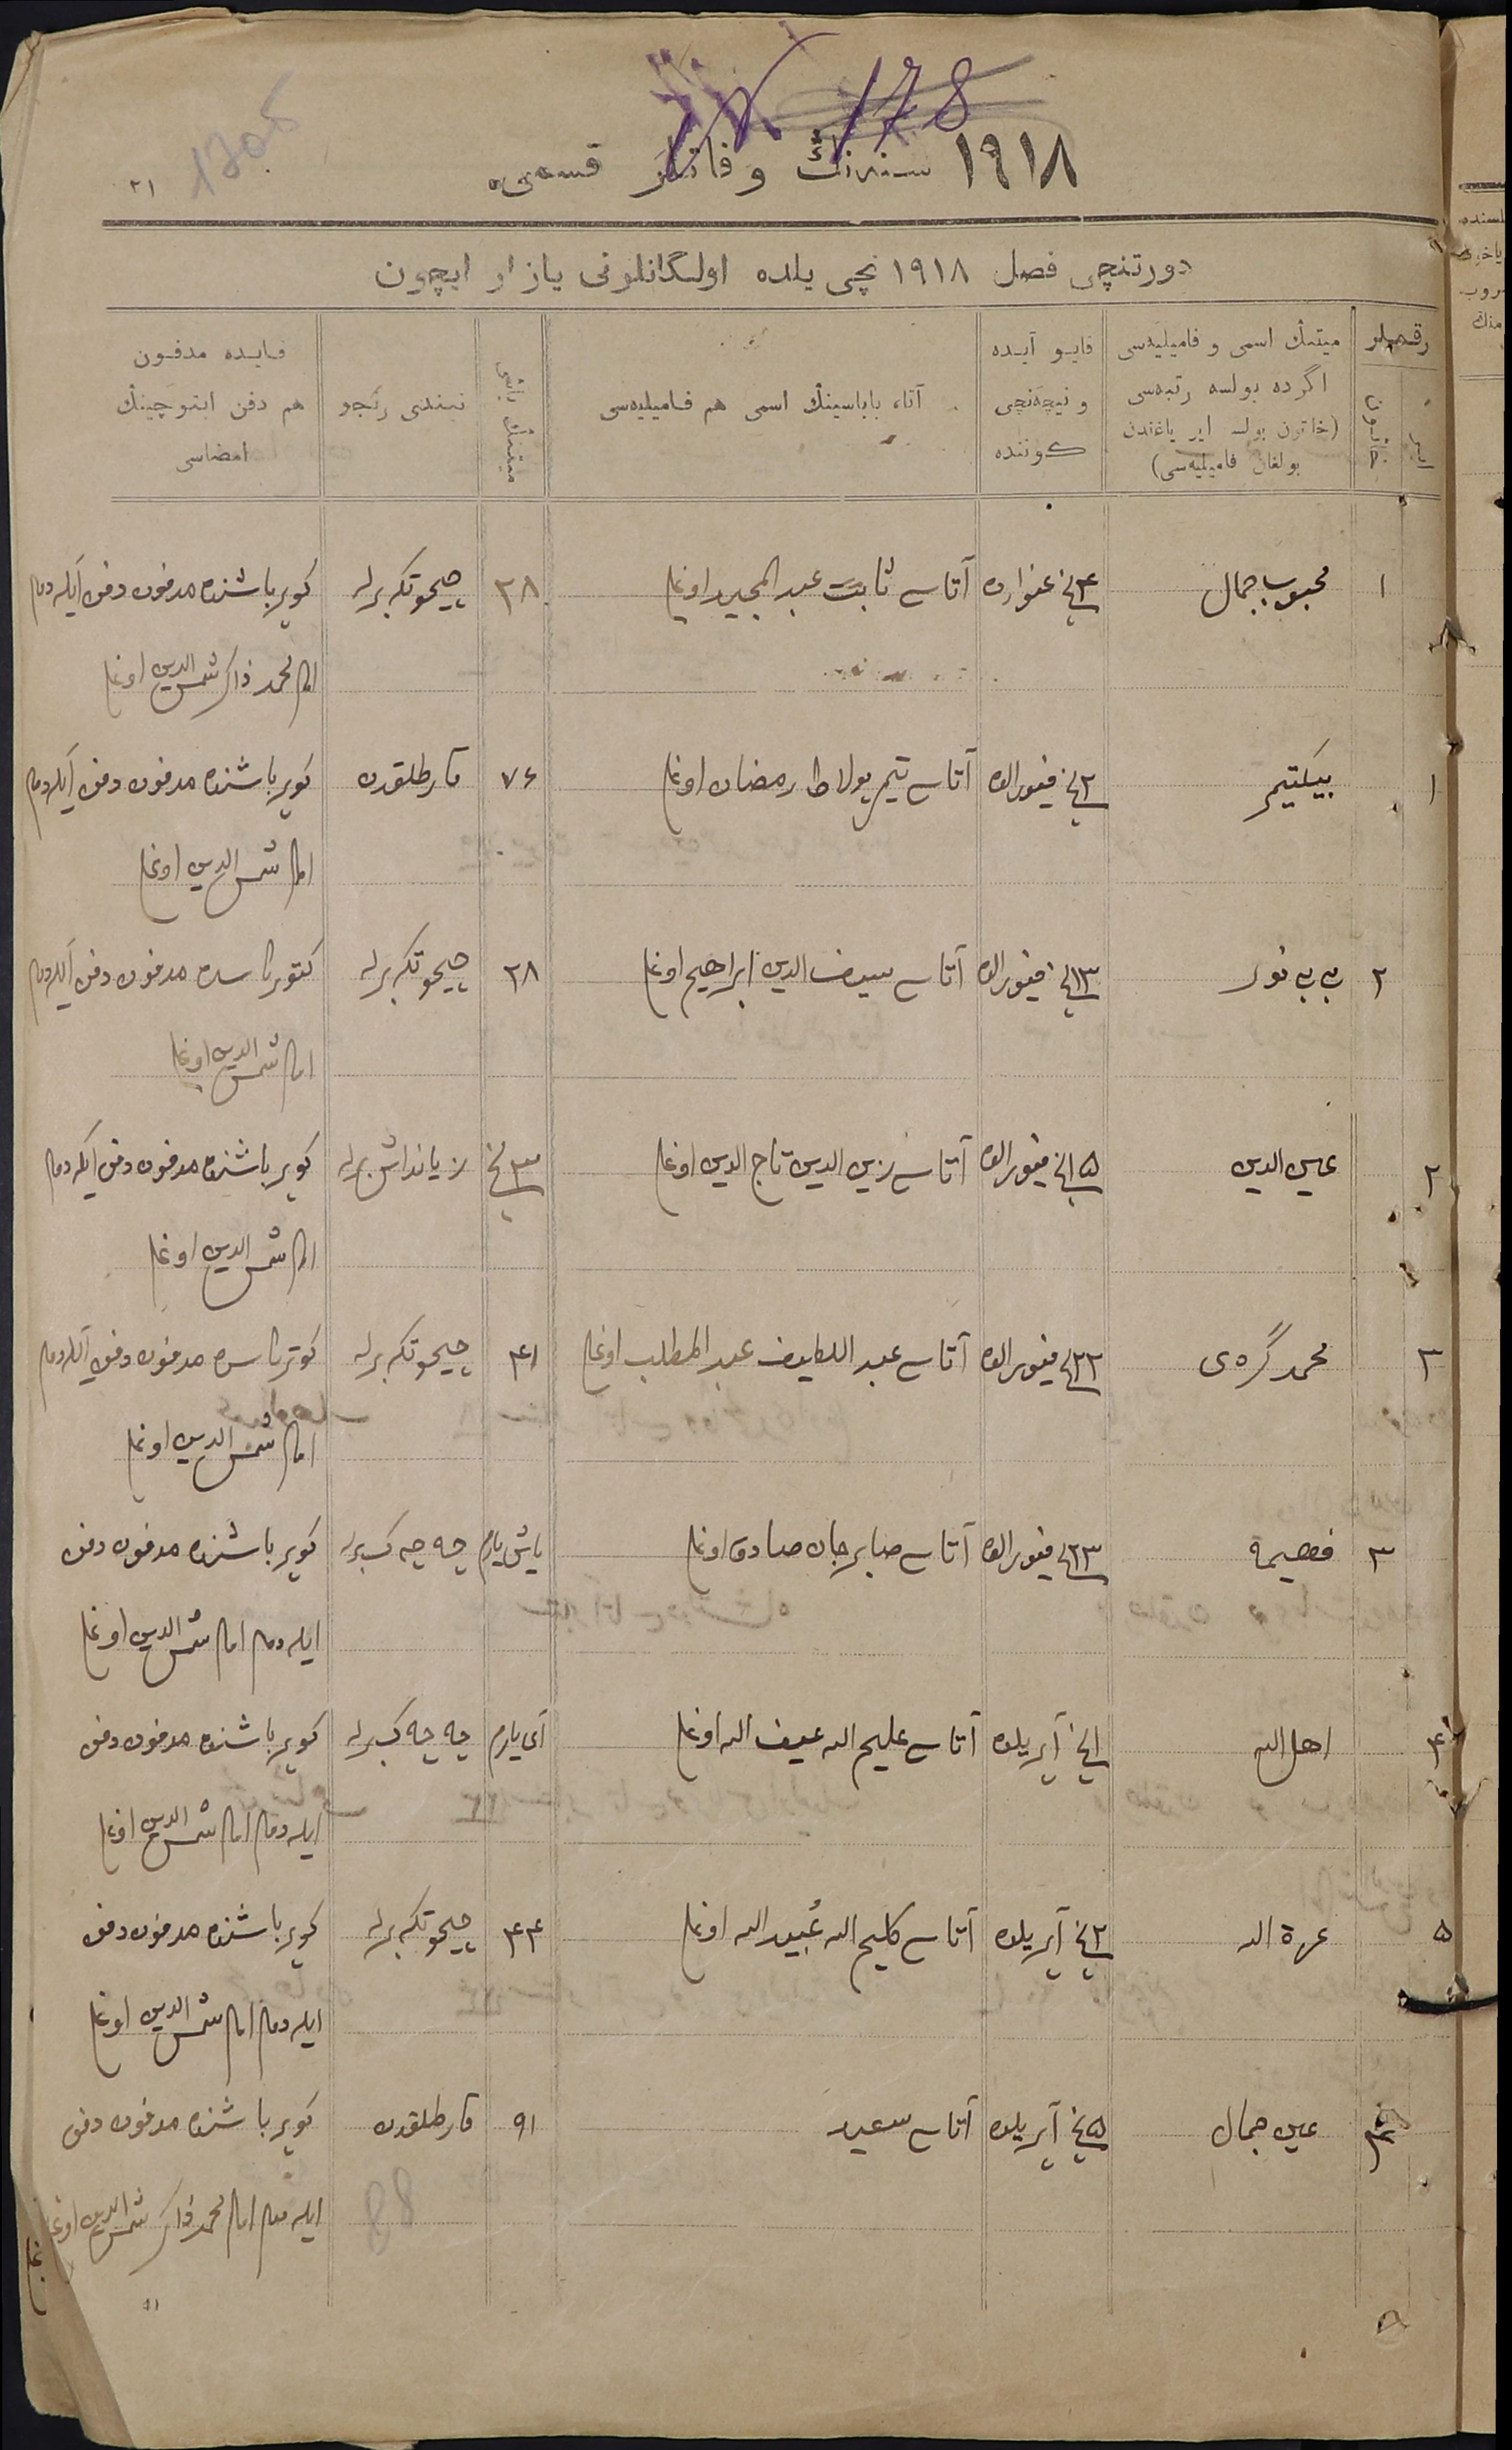 178
170
۱۹۱۸ سنه‌نڭ وفاتلر قسمی
۲۱
دورتنچی فصل ۱۹۱۸ نچی یلده اولگانلرنی یازار ایچون
رقملر
ایر
خاتون
میتنڭ اسمی و فامیلیه‌سی
اگرده بولسه رتبه‌سی
(خاتون بولسه ایر یاغندن
بولغان فامیلیه‌سی)
قایو آیده
و نیچه‌نچی
کوننده
آتا، باباسینڭ اسمی هم فامیلیه‌سی
میتنڭ یاشی
نیندی رنجو
قایده مدفون
هم دفن ایتوچینڭ
امضاسی
۱ محبوب جمال ۴نچی غنوارده آتاسی ثابت عبد المجید اوغلی ۲۸ چیحوتکه برله کویرباشنده مدفون دفن ایله‌دم
امام محمد ذاکر شمس الدین اوغلی
۱ بیکتیمر ۲نچی فیورالده آتاسی تیمربولاط رمضان اوغلی ۷۶ قارطلقدن کویرباشنده مدفون دفن ایله‌دم
امام شمس الدین اوغلی
۲ بی بی نور ۱۳نچی فیورالده آتاسی سیف الدین ابراهیم اوغلی ۲۸ چیحوتکه برله مدفون دفن ایله‌دم
امام شمس الدین اوغلی
۲ عین الدین ۱۵نچی فیورالده آتاسی زین الدین تاج الدین اوغلی ۳نچی برله کویرباشنده مدفون دفن ایله‌دم
امام شمس الدین اوغلی
۳ محمد گره‌ی ۲۲نچی فیورالده آتاسی عبد اللطیف عبد المطلب اوغلی ۴۱ چیحوتکه برله مدفون دفن ایله‌دم
امام شمس الدین اوغلی
۳ فهیمة ۲۳نچی فیورالده آتاسی صابرجان صادق اوغلی یاش یارم چه چه ک برله کویرباشنده مدفون دفن
ایله‌دم امام شمس الدین اوغلی
۴ اهل الله ۱نچی آپریلده آتاسی علیم الله عیف الله اوغلی آی یارم چه چه ک برله کویرباشنده مدفون دفن
ایله‌دم امام شمس الدین اوغلی
۵ ۲نچی آپریلده آتاسی کلیم الله عُبید الله اوغلی ۴۴ چیحوتکه برله کویرباشنده مدفون دفن
ایله‌دم امام شمس الدین اوغلی
۴ عین جمال ۵نچی آپریلده آتاسی سعید ۹۱ قارطلقدن کویرباشنده مدفون دفن
ایله‌دم امام محمد ذاکر شمس الدین اوغلی
88